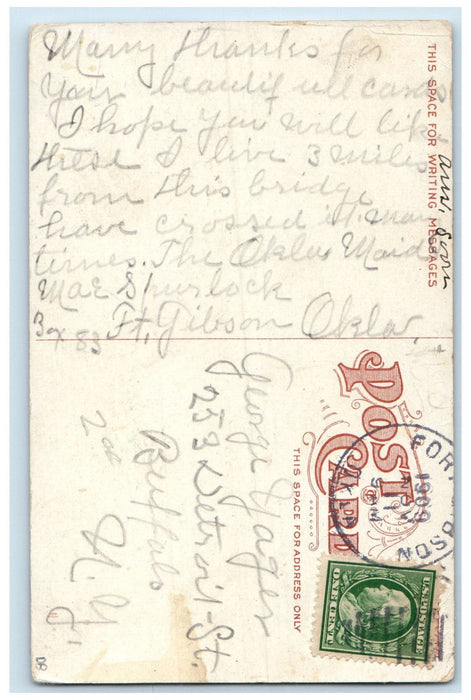 Many thanks for
your beautiful cards
I hope you will like
these I live 3 miles
from this bridge
have crossed it many
times. The Okla, Maid
Mae Spurlock
Box 83 Ft, Gibson Okla,
Ans, Soon
THIS SPACE FOR WRITING MESSAGES
POST CARD
THIS SPACE FOR ADDRESS ONLY
George Yager
253 Detroit St.
Buffalo
N. Y
2nd
FORT
OKLA
1909
U.S. POSTAGE
ONE CENT
D8